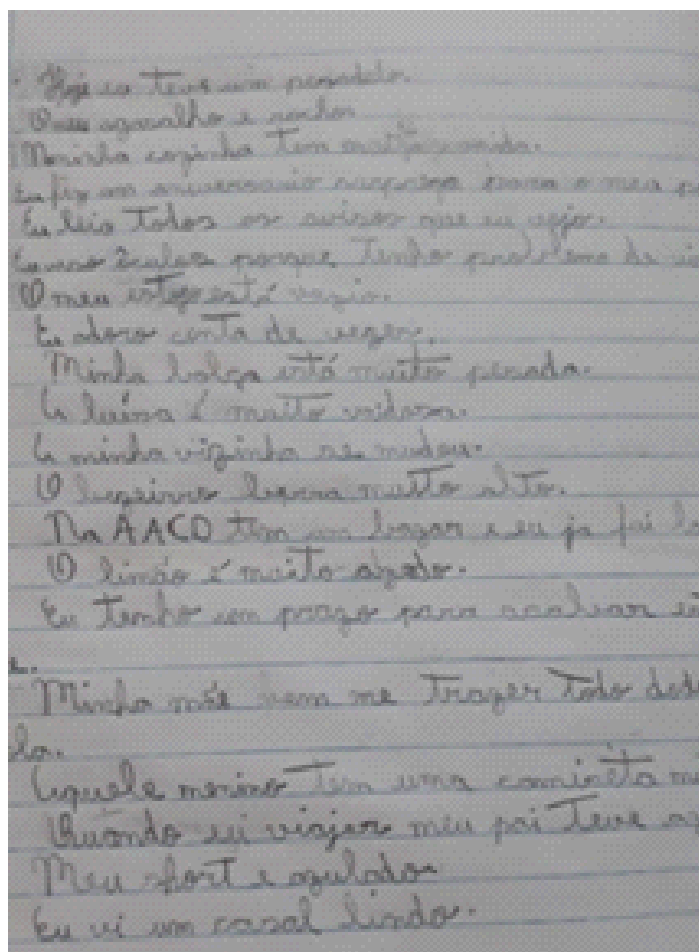 Hoje eu teve um pesadelo.
O meu agasalho e rocho
Mininha cozinha tem comida.
Eu fiz um aniversario surpreza para o meu p
Eu leio todos os avisos que eu vejo.
Eu uso óculos porque tenho problema de
O meu estojo está vazio.
Eu adoro conta de vezes.
Minha bolça está muito pesada.
A luísa é muito vaidosa.
A minha vizinha se mudou.
O bezeirro berra muito alto.
Na AACD tem um bazar e eu ja fui l
O limão é muito azedo.
Eu tenho um prazo para acabar
e.
Minha mãe vem me trazer todo
la.
Aquele menino tem uma camiseta m
Quando eu viajer meu pai teve
Meu short e azulado
Eu vi um casal lindo.